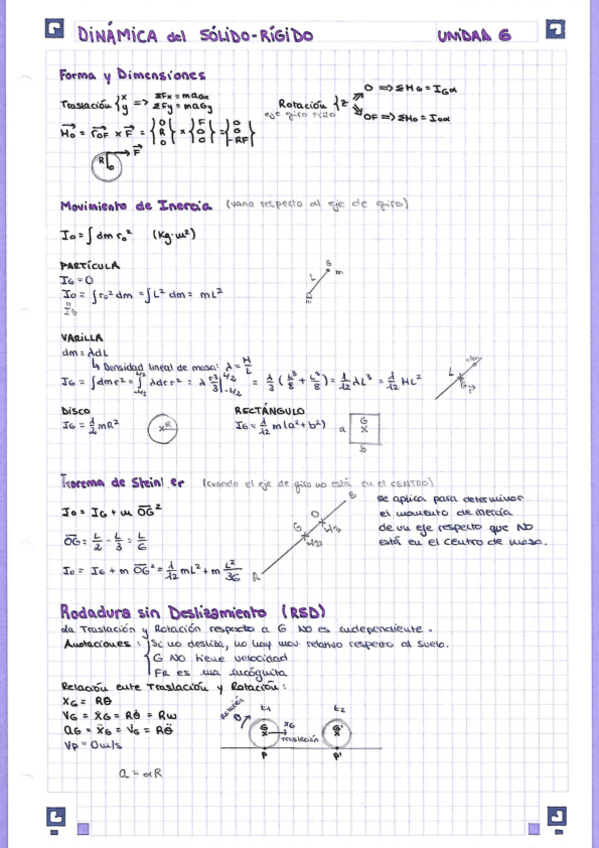 DINÁMICA del SÓLIDO-RÍGIDO UNIDAD 6
Forma y Dimensiones
Traslación { x y => ΣFx = maGx ΣFy = maGy
Rotación { z => O => ΣMG = IGα
eje giro fijo OF => ΣMo = Ioα
Mo = rOF x F = { O R O } x { F O O } = { O O -RF }
R F
O
Movimiento de Inercia (varia respecto al eje de giro)
Io = ∫ dm ro² (Kg·m²)
PARTÍCULA
IG = 0
Io = ∫ ro² dm = ∫ L² dm = mL²
L G m
VARILLA
dm = λdL
↳ Densidad lineal de masa: λ = M/L
IG = ∫ dm r² = ∫ λdr r² = λ r³/3 |L/2 -L/2 = λ/3 (L³/8 + L³/8) = 1/12 λL³ = 1/12 ML²
L G
DISCO RECTÁNGULO
IG = 1/2 mR² R IG = 1/12 m(a²+b²) a G b
Teorema de Steinler (cuando el eje de giro no está en el CENTRO)
Io = IG + m OG²
OG = L/2 - L/3 = L/6
Io = IG + m OG² = 1/12 mL² + m L²/36
A G O B
se aplica para determinar
el momento de inercia
de un eje respecto que NO
está en el centro de masa.
Rodadura sin Deslizamiento (RSD)
La Traslación y Rotación respecto a G NO es independiente.
Anotaciones: { Si no desliza, no hay mov relativo respecto al suelo.
G NO tiene velocidad
FR es una incógnita
Relación entre Traslación y Rotación:
XG = Rθ
VG = ẊG = Rθ̇ = Rω
aG = ẌG = V̇G = Rθ̈
Vp = 0m/s
a = αR
Rotación θ t1 t2
G XG G'
Traslación
P P'